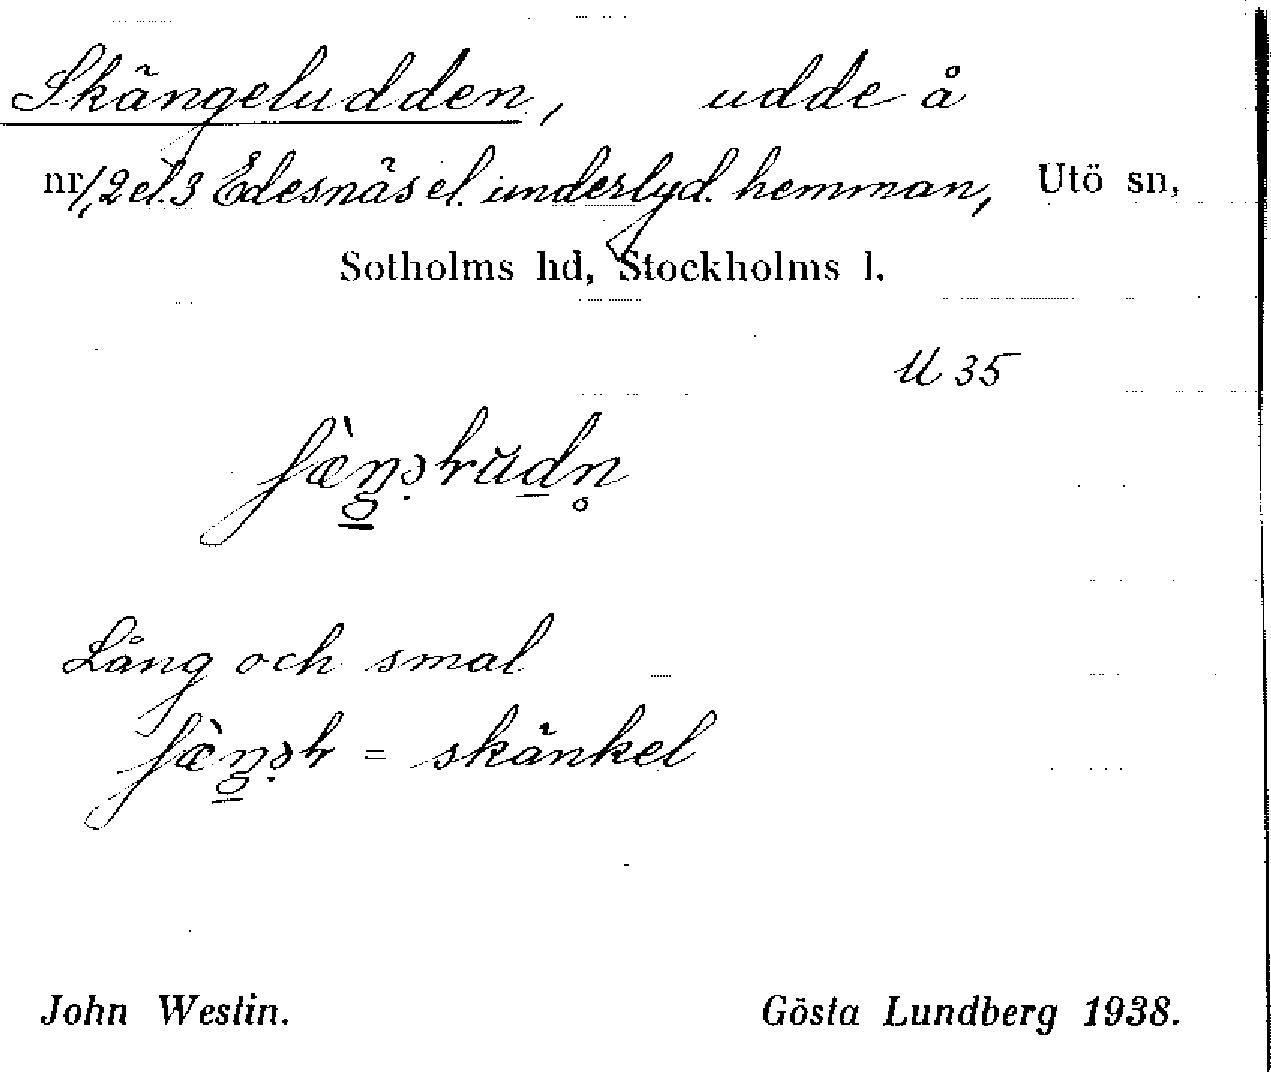 Skängeludden, udde å
nr 1, 2 el. 3 Edesnäs el. underlyd. hemman, Utö sn,
Sotholms hd, Stockholms l.
U 35
Lång och smal
= skänkel
John Westin. Gösta Lundberg 1938.